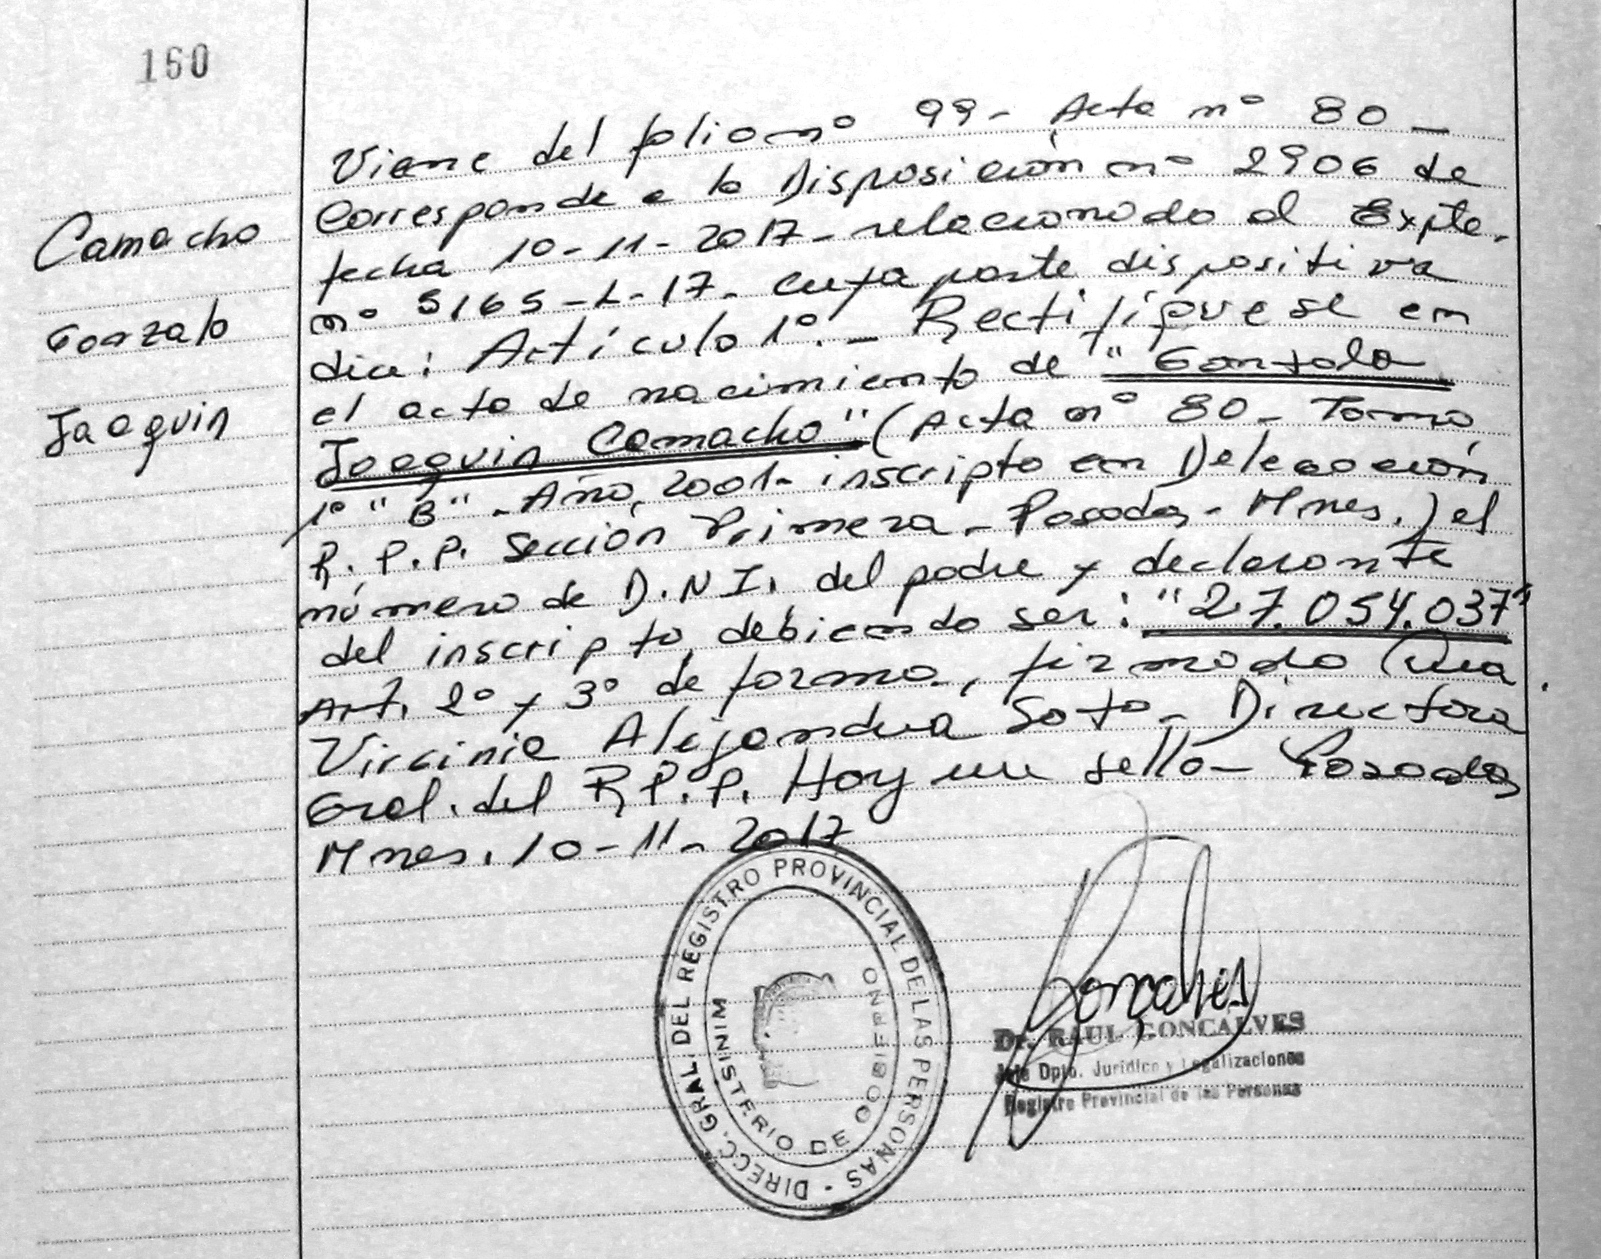 160
Camacho
Gonzalo
Joaquin
Viene del folio nº 99 - Acta nº 80 -
Corresponde a la Disposición nº 2906 de
fecha 10-11-2017 - relacionado al Expte.
nº 5165-L-17- cuya parte dispositiva
dice: Artículo 1º.- Rectifíquese en
el acta de nacimiento de "Gonzalo
Joaquin Camacho" (Acta nº 80 - Tomo
1º "B" - Año 2001 - inscripto en Delegación
R.P.P. Sección Primera - Posadas - Mnes.) el
número de D.N.I. del padre y declarante
del inscripto, debiendo ser: "27.054.037"
Art. 2º y 3º de forma, firmado
Virginia Alejandra Soto - Directora
Gral. del R.P.P. Hay un sello - Posadas
Mnes. 10-11-2017
DIRECC. GRAL. DEL REGISTRO PROVINCIAL DE LAS PERSONAS -
MINISTERIO DE GOBIERNO
Goncalves
Dr. RAUL GONCALVES
Jefe Dpto. Jurídico y Legalizaciones
Registro Provincial de las Personas